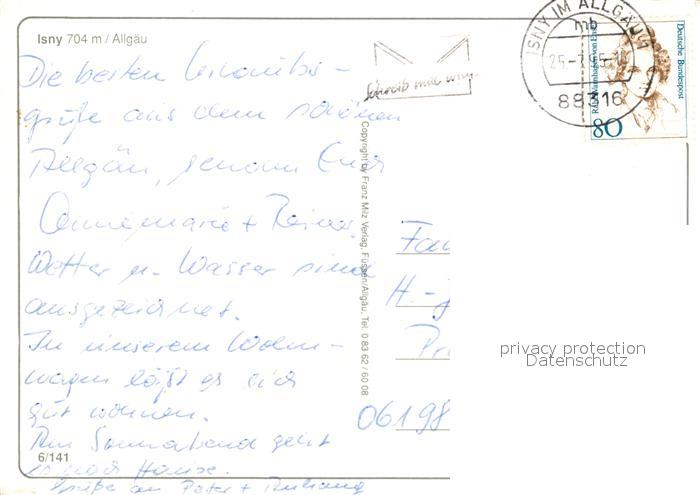 Isny 704 m / Allgäu
Die besten Urlaubs-
grüße aus dem schönen
Allgäu, senden Euch
Annemarie + Reiner.
Wetter u. Wasser sind
ausgezeichnet.
In unserem Wohn-
wagen läßt es sich
gut wohnen.
Am Sonnabend geht
es nach Hause.
Grüße an Peter +
6/141
Copyright by Franz Milz Verlag, Füssen/Allgäu, Tel. 0 83 62 / 60 08
Schreib mal
ISNY IM ALLGÄU
mb
88316
Deutsche Bundespost
80
Fa
H.-
Pr
06198
privacy protection
Datenschutz